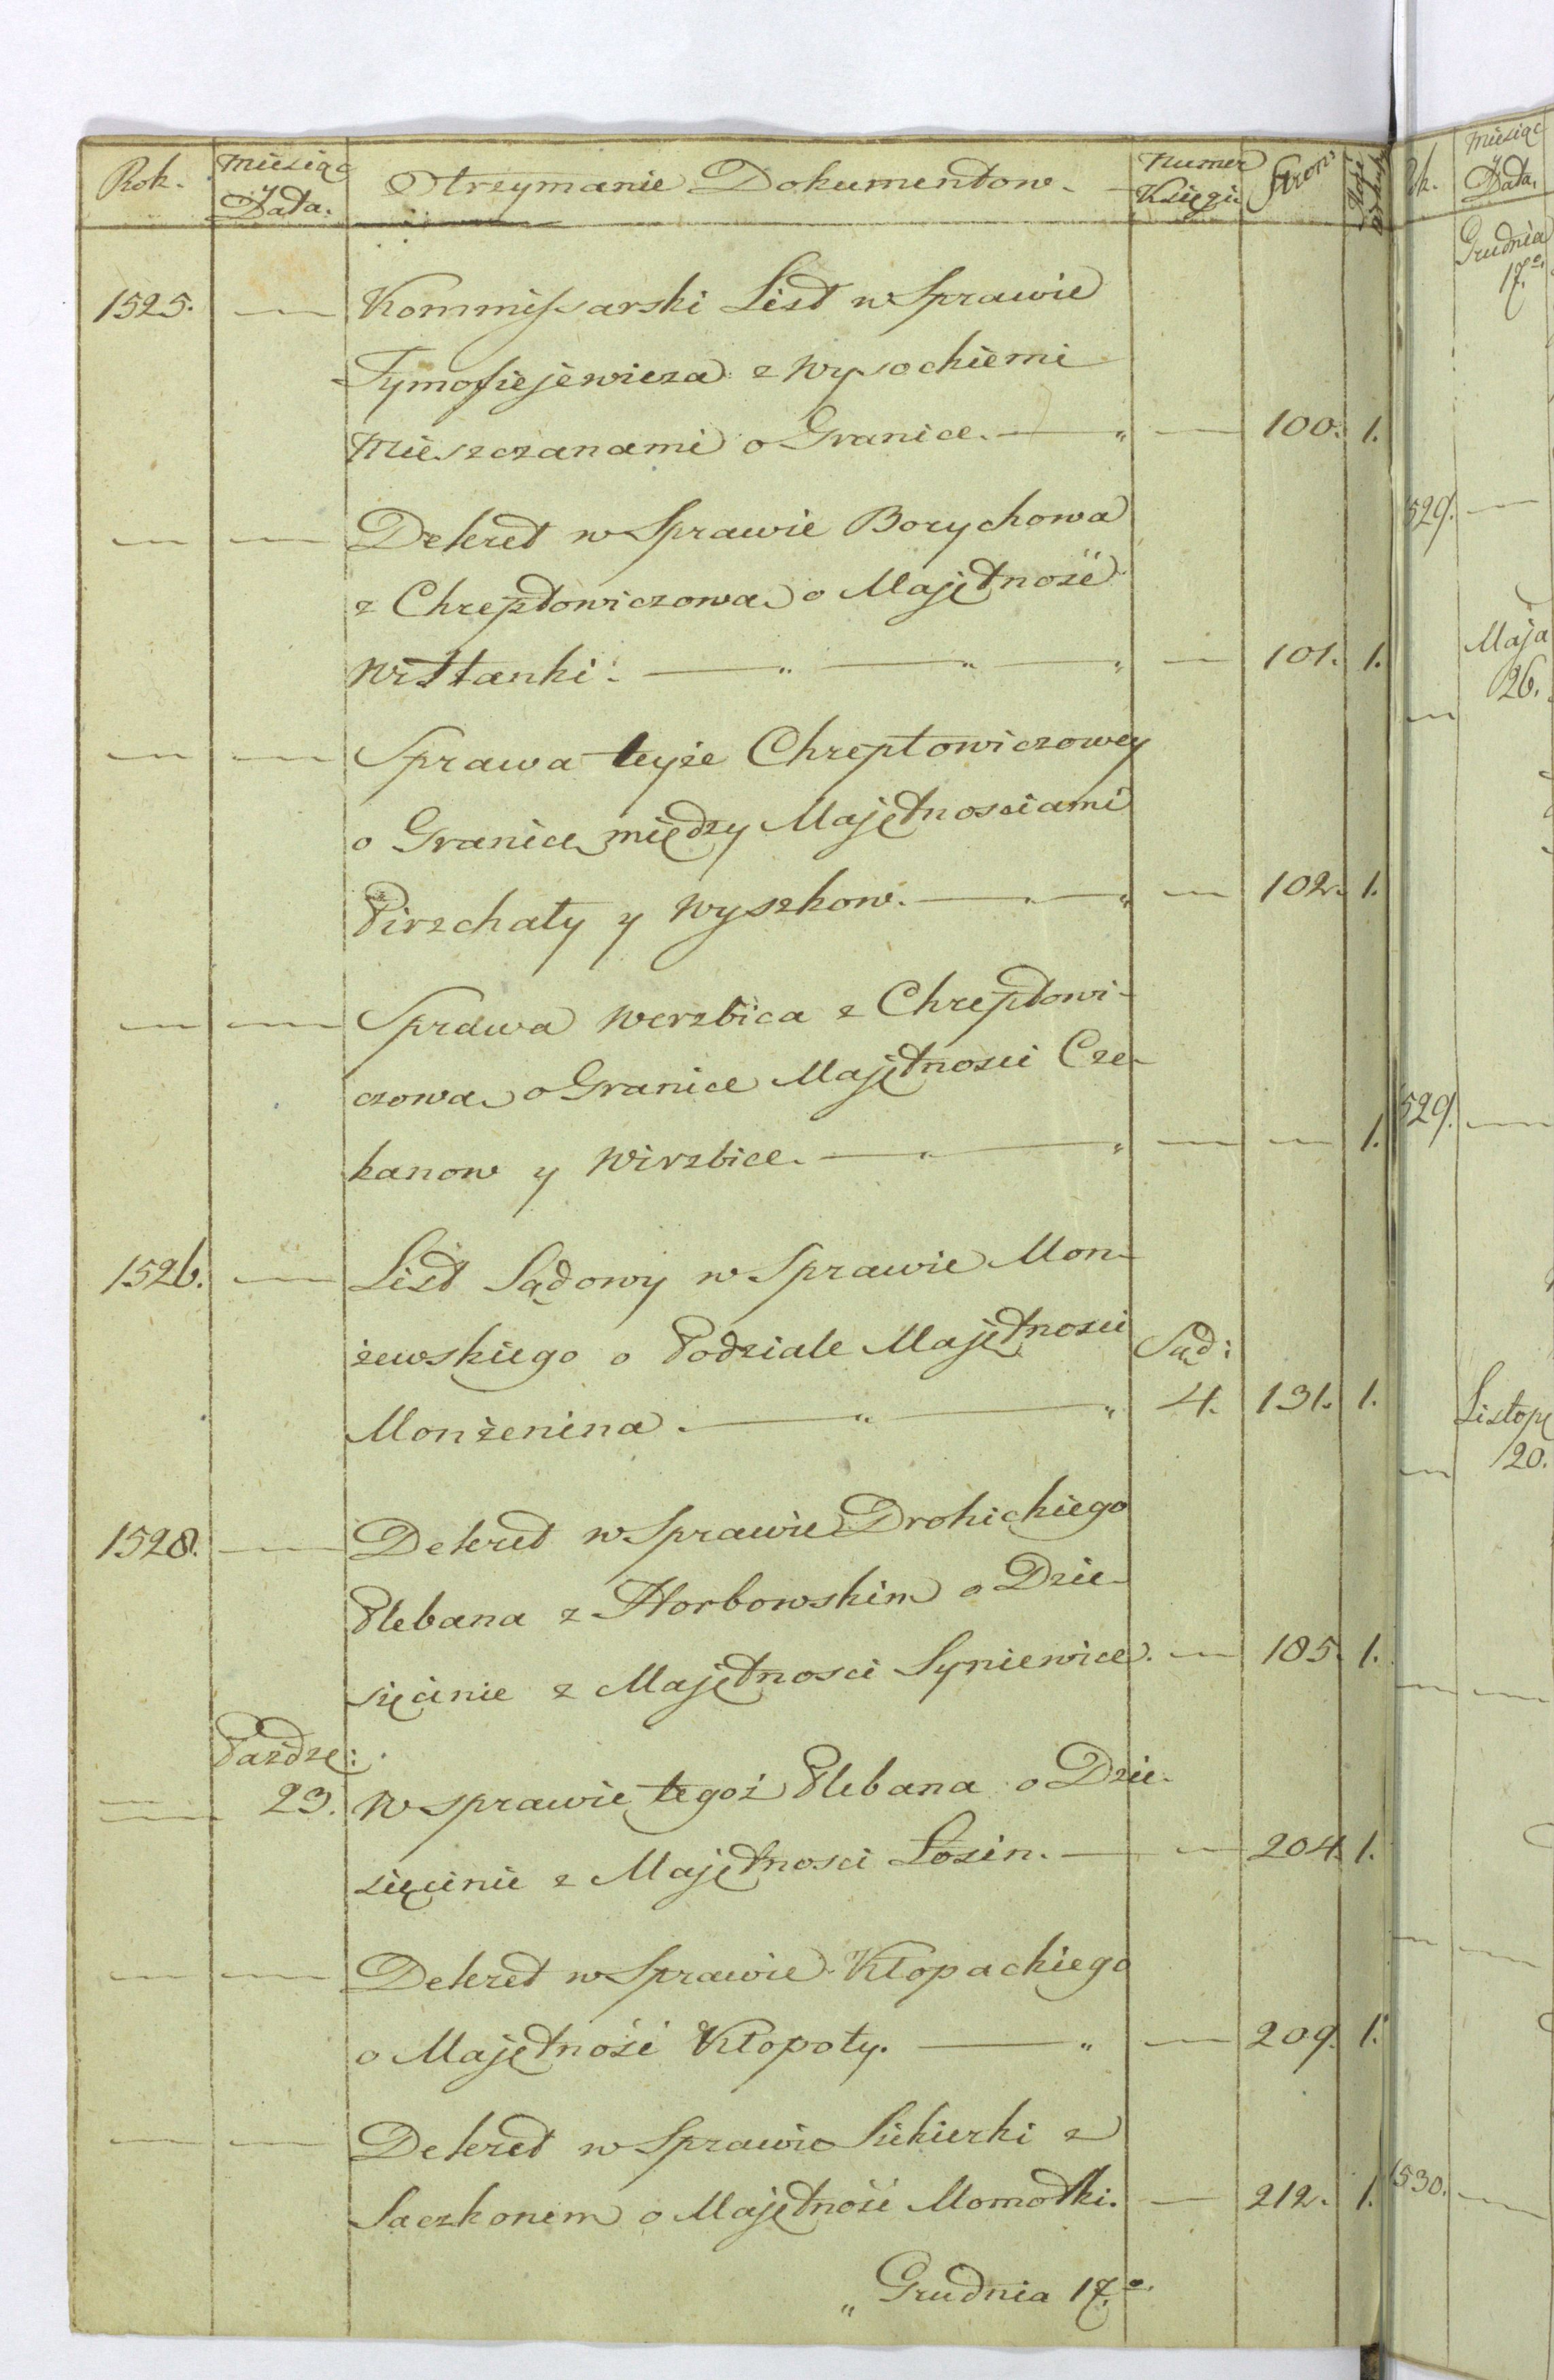 Rok. Miesiąc Otrzymanie Dokumentow. Numer Stron
Data. Księgi
1525. — Kommissarski List w Sprawie
Tymofiejewicza z Wysockiemi
Mieszczanami o Granice. — „ — 100. 1.
— — Dekret w Sprawie Borychowa
z Chreptowiczowa o Majętność
Witanki. — „ — „ — „ — 101. 1.
— — Sprawa teyże Chreptowiczowey
o Granice między Majętnosciami
Pirzchały y Wyszkow. — „ — 102. 1.
— — Sprawa Werzbica z Chreptowi-
czowa o Granice Majętnosci Cze-
kanow y Wirzbice. — „ — „ — — 1.
1526. — List Sądowy w Sprawie Mon-
żewskiego o Podziale Majętnosci Sąd:
Monżenina. — „ — „ 4. 131. 1.
1528. — Dekret w Sprawie Drohickiego
Plebana z Horbowskim o Dzie-
sięcinie z Majętnosci Syniewice. — 185. 1.
Paźdze:
— 23. W sprawie tegoż Plebana o Dzie-
sięcinie z Majętnosci Łosin. — — 204. 1.
— — Dekret w Sprawie Kłopackiego
o Majętność Kłopoty. — „ — 209. 1.
— — Dekret w Sprawie Siekierki z
Saczkonem o Majętność Momotki. — 212. 1.
„ Grudnia 17.º
Miesiąc
Data.
Grudnia
17.º
529. —
Maja
— 26.
529. —
20.
530. —